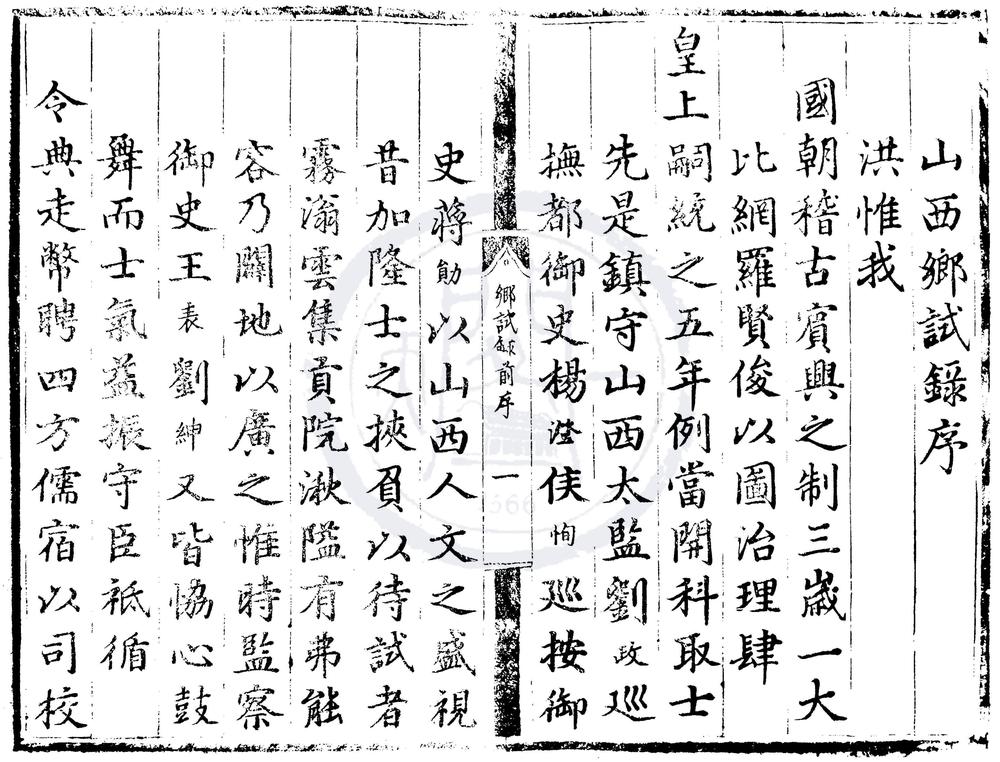 山西鄉試錄序
洪惟我
國朝稽古賓興之制三歲一大
比網羅賢俊以圖治理肆
皇上嗣統之五年例當開科取士
先是鎮守山西太監劉政巡
撫都御史楊澄侯恂巡按御
鄉試錄前序
一
史蔣勛以山西人文之盛視
昔加隆士之挾負以待試者
霧滃雲集貢院湫隘有弗能
容乃闢地以廣之惟時監察
御史王表劉紳又皆恊心鼓
舞而士氣益振守臣祗循
令典走幣聘四方儒宿以司校